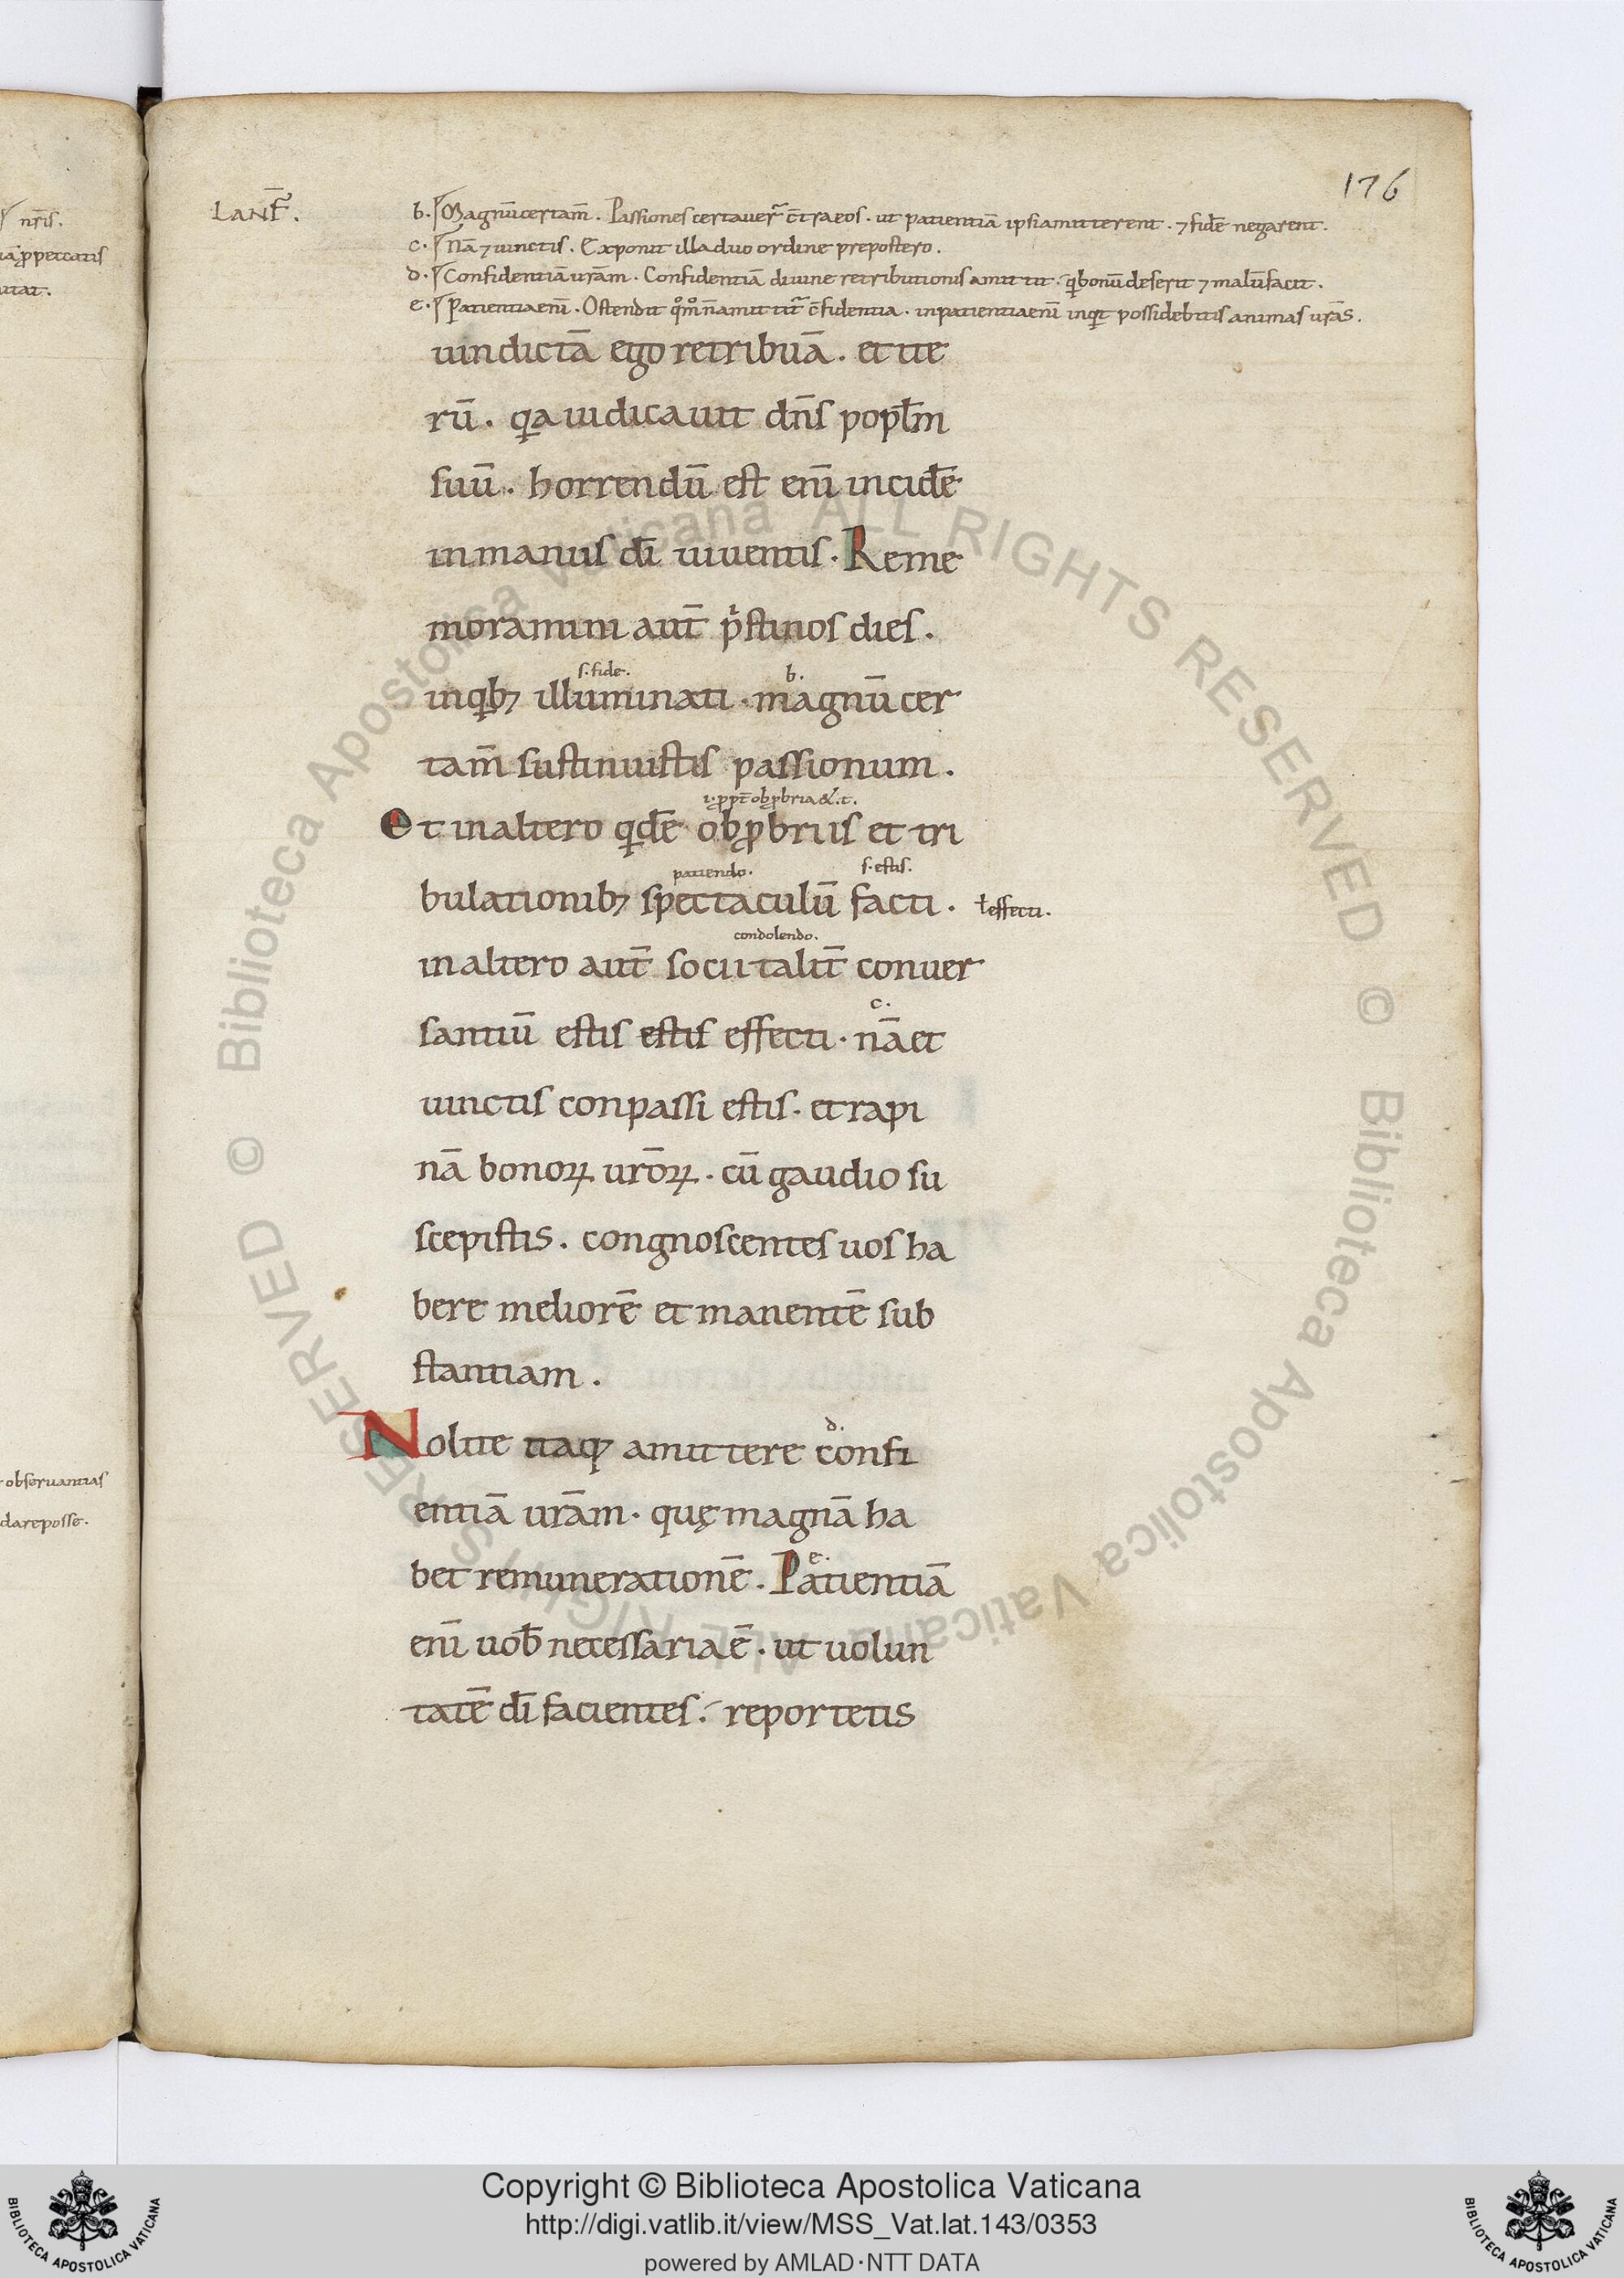 176
LANF̄.
b. Magnū certam̄. Passiones certauer̄ c̄tra eos. ut patientiā ipsi amitterent. ⁊ fidē negarent.
c. Nā ⁊ uinctis. Exponit illa duo ordine prepostero.
d. Confidentiā urām. Confidentiā diuine retributionis amittit. qi bonū deserit ⁊ malū facit.
e. Patientia enī. Ostendit qōmō n̄ amittit̄ c̄fidentia. in patientia enī inqt possidebitis animas urās.
uindictā ego retribuā. et ite
rū. qa iudicauit dn̄s popl̄m
suū. horrendū est enī incidē
in manus dī uiuentis. Reme
moramini aut̄ p̄stinos dies.
s. fide. b.
in qb; illuminati. magnū cer
tam̄ sustinuistis passionum.
i. ꝓpt̄ obꝓbria &. t.
Et in altero qdē obꝓbriis et tri
patiendo. s. estis.
bulationib; spectaculū facti. ł effecti.
condolendo.
in altero aut̄ socii talit̄ conuer
c.
santiū estis estis effecti. nā et
uinctis conpassi estis. et rapi
nā bonoꝝ urōꝝ. cū gaudio su
scepistis. congnoscentes uos ha
bere meliorē et manentē sub
stantiam.
d.
Nolite itaq; amittere confi
entiā urām. quę magnā ha
e.
bet remunerationē. Patientiā
enī uob̄ necessaria ē. ut uolun
tatē dī facientes. reportetis
nr̄is.
ꝓ peccatis
observantias
dare posse.
Copyright © Biblioteca Apostolica Vaticana
http://digi.vatlib.it/view/MSS_Vat.lat.143/0353
powered by AMLAD·NTT DATA
BIBLIOTECA APOSTOLICA VATICANA
BIBLIOTECA APOSTOLICA VATICANA
© Biblioteca Apostolica Vaticana ALL RIGHTS RESERVED © Biblioteca Apostolica Vaticana ALL RIGHTS RESERVED